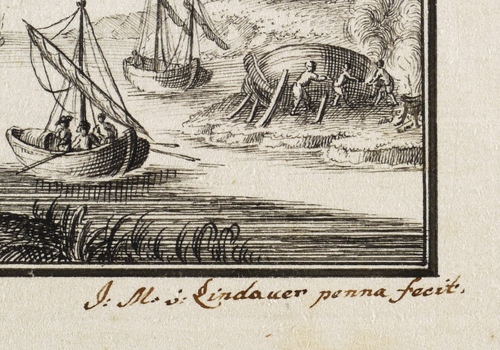 J: M. v: Lindauer penna fecit.